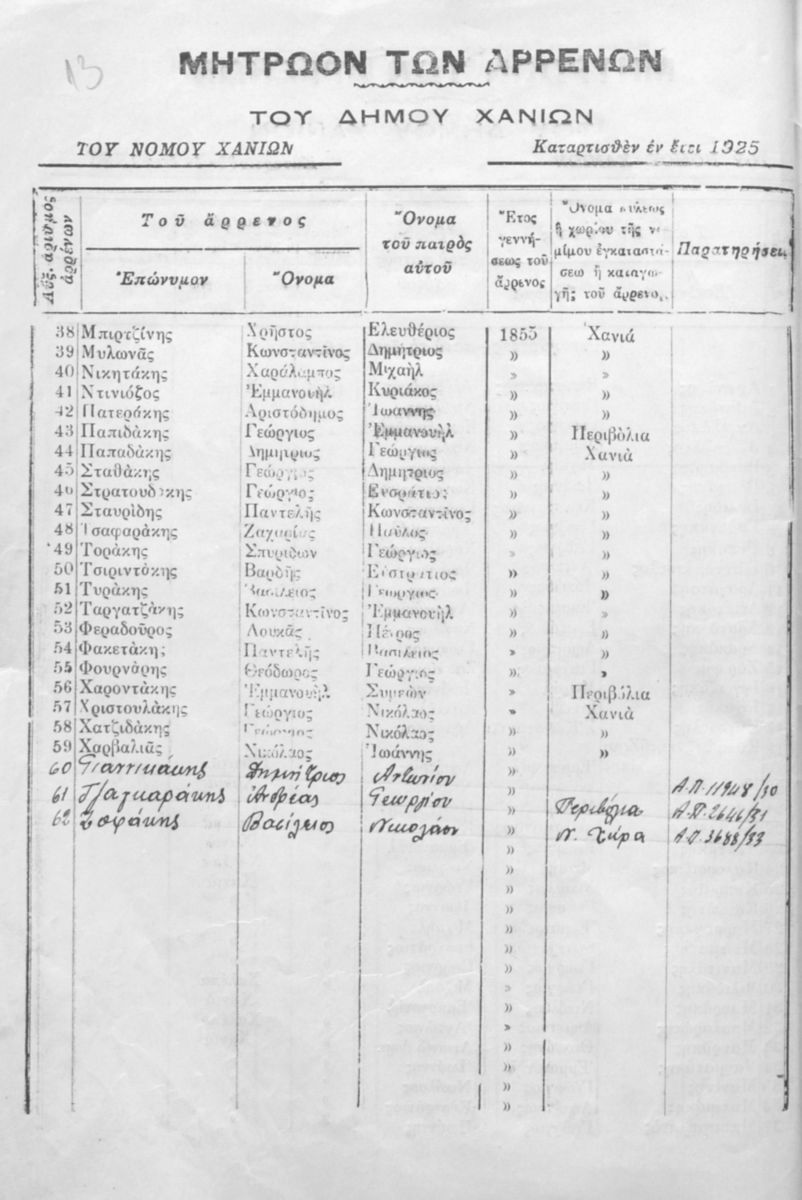 13
ΜΗΤΡΩΟΝ ΤΩΝ ΑΡΡΕΝΩΝ
ΤΟΥ ΔΗΜΟΥ ΧΑΝΙΩΝ
ΤΟΥ ΝΟΜΟΥ ΧΑΝΙΩΝ Καταρτισθὲν ἐν ἔτει 1925
Αὔξ. ἀριθμὸς ἀρρένων
Τοῦ ἄρρενος
Ἐπώνυμον Ὄνομα
Ὄνομα τοῦ πατρὸς αὐτοῦ
Ἔτος γεννήσεως τοῦ ἄρρενος
Ὄνομα πόλεως ἢ χωρίου τῆς νομίμου ἐγκαταστάσεω ἢ καταγωγῆς τοῦ ἄρρενο.
Παρατηρήσεις
38 Μπιρτζίνης Χρῆστος Ἐλευθέριος 1855 Χανιά
39 Μυλωνᾶς Κωνσταντῖνος Δημήτριος » »
40 Νικητάκης Χαράλαμπος Μιχαὴλ » »
41 Ντινιόζος Ἐμμανουὴλ Κυριάκος » »
42 Πατεράκης Ἀριστόδημος Ἰωάννης » »
43 Παπιδάκης Γεώργιος Ἐμμανουὴλ » Περιβόλια
44 Παπαδάκης Δημήτριος Γεώργιος » Χανιὰ
45 Σταθάκης Γεώργιος Δημήτριος » »
46 Στρατουδάκης Γεώργιος Εὐστράτιος » »
47 Σταυρίδης Παντελῆς Κωνσταντῖνος » »
48 Τσαφαράκης Ζαχαρίας Παῦλος » »
49 Τοράκης Σπυρίδων Γεώργιος » »
50 Τσιριντάκης Βαρδῆς Εὐστράτιος » »
51 Τυράκης Βασίλειος Γεώργιος » »
52 Ταργατζάκης Κωνσταντῖνος Ἐμμανουὴλ » »
53 Φεραδοῦρος Λουκᾶς Πέτρος » »
54 Φακετάκης Παντελῆς Βασίλειος » »
55 Φουρνάρης Θεόδωρος Γεώργιος » »
56 Χαροντάκης Ἐμμανουὴλ Συμεὼν » Περιβόλια
57 Χριστουλάκης Γεώργιος Νικόλαος » Χανιὰ
58 Χατζιδάκης Γεώργιος Νικόλαος » »
59 Χαρβαλιᾶς Νικόλαος Ἰωάννης » »
60 Γιαννικάκης Δημήτριος Ἀντωνίου » Α.Π. 11948/30
61 Τζαγκαράκης Ἀνδρέας Γεωργίου » Περιβόλια Α.Π. 2646/31
62 Σοφάκης Βασίλειος Νικολάου » Ν. Χώρα Α.Π. 3688/33
»
»
»
»
»
»
»
»
»
»
»
»
»